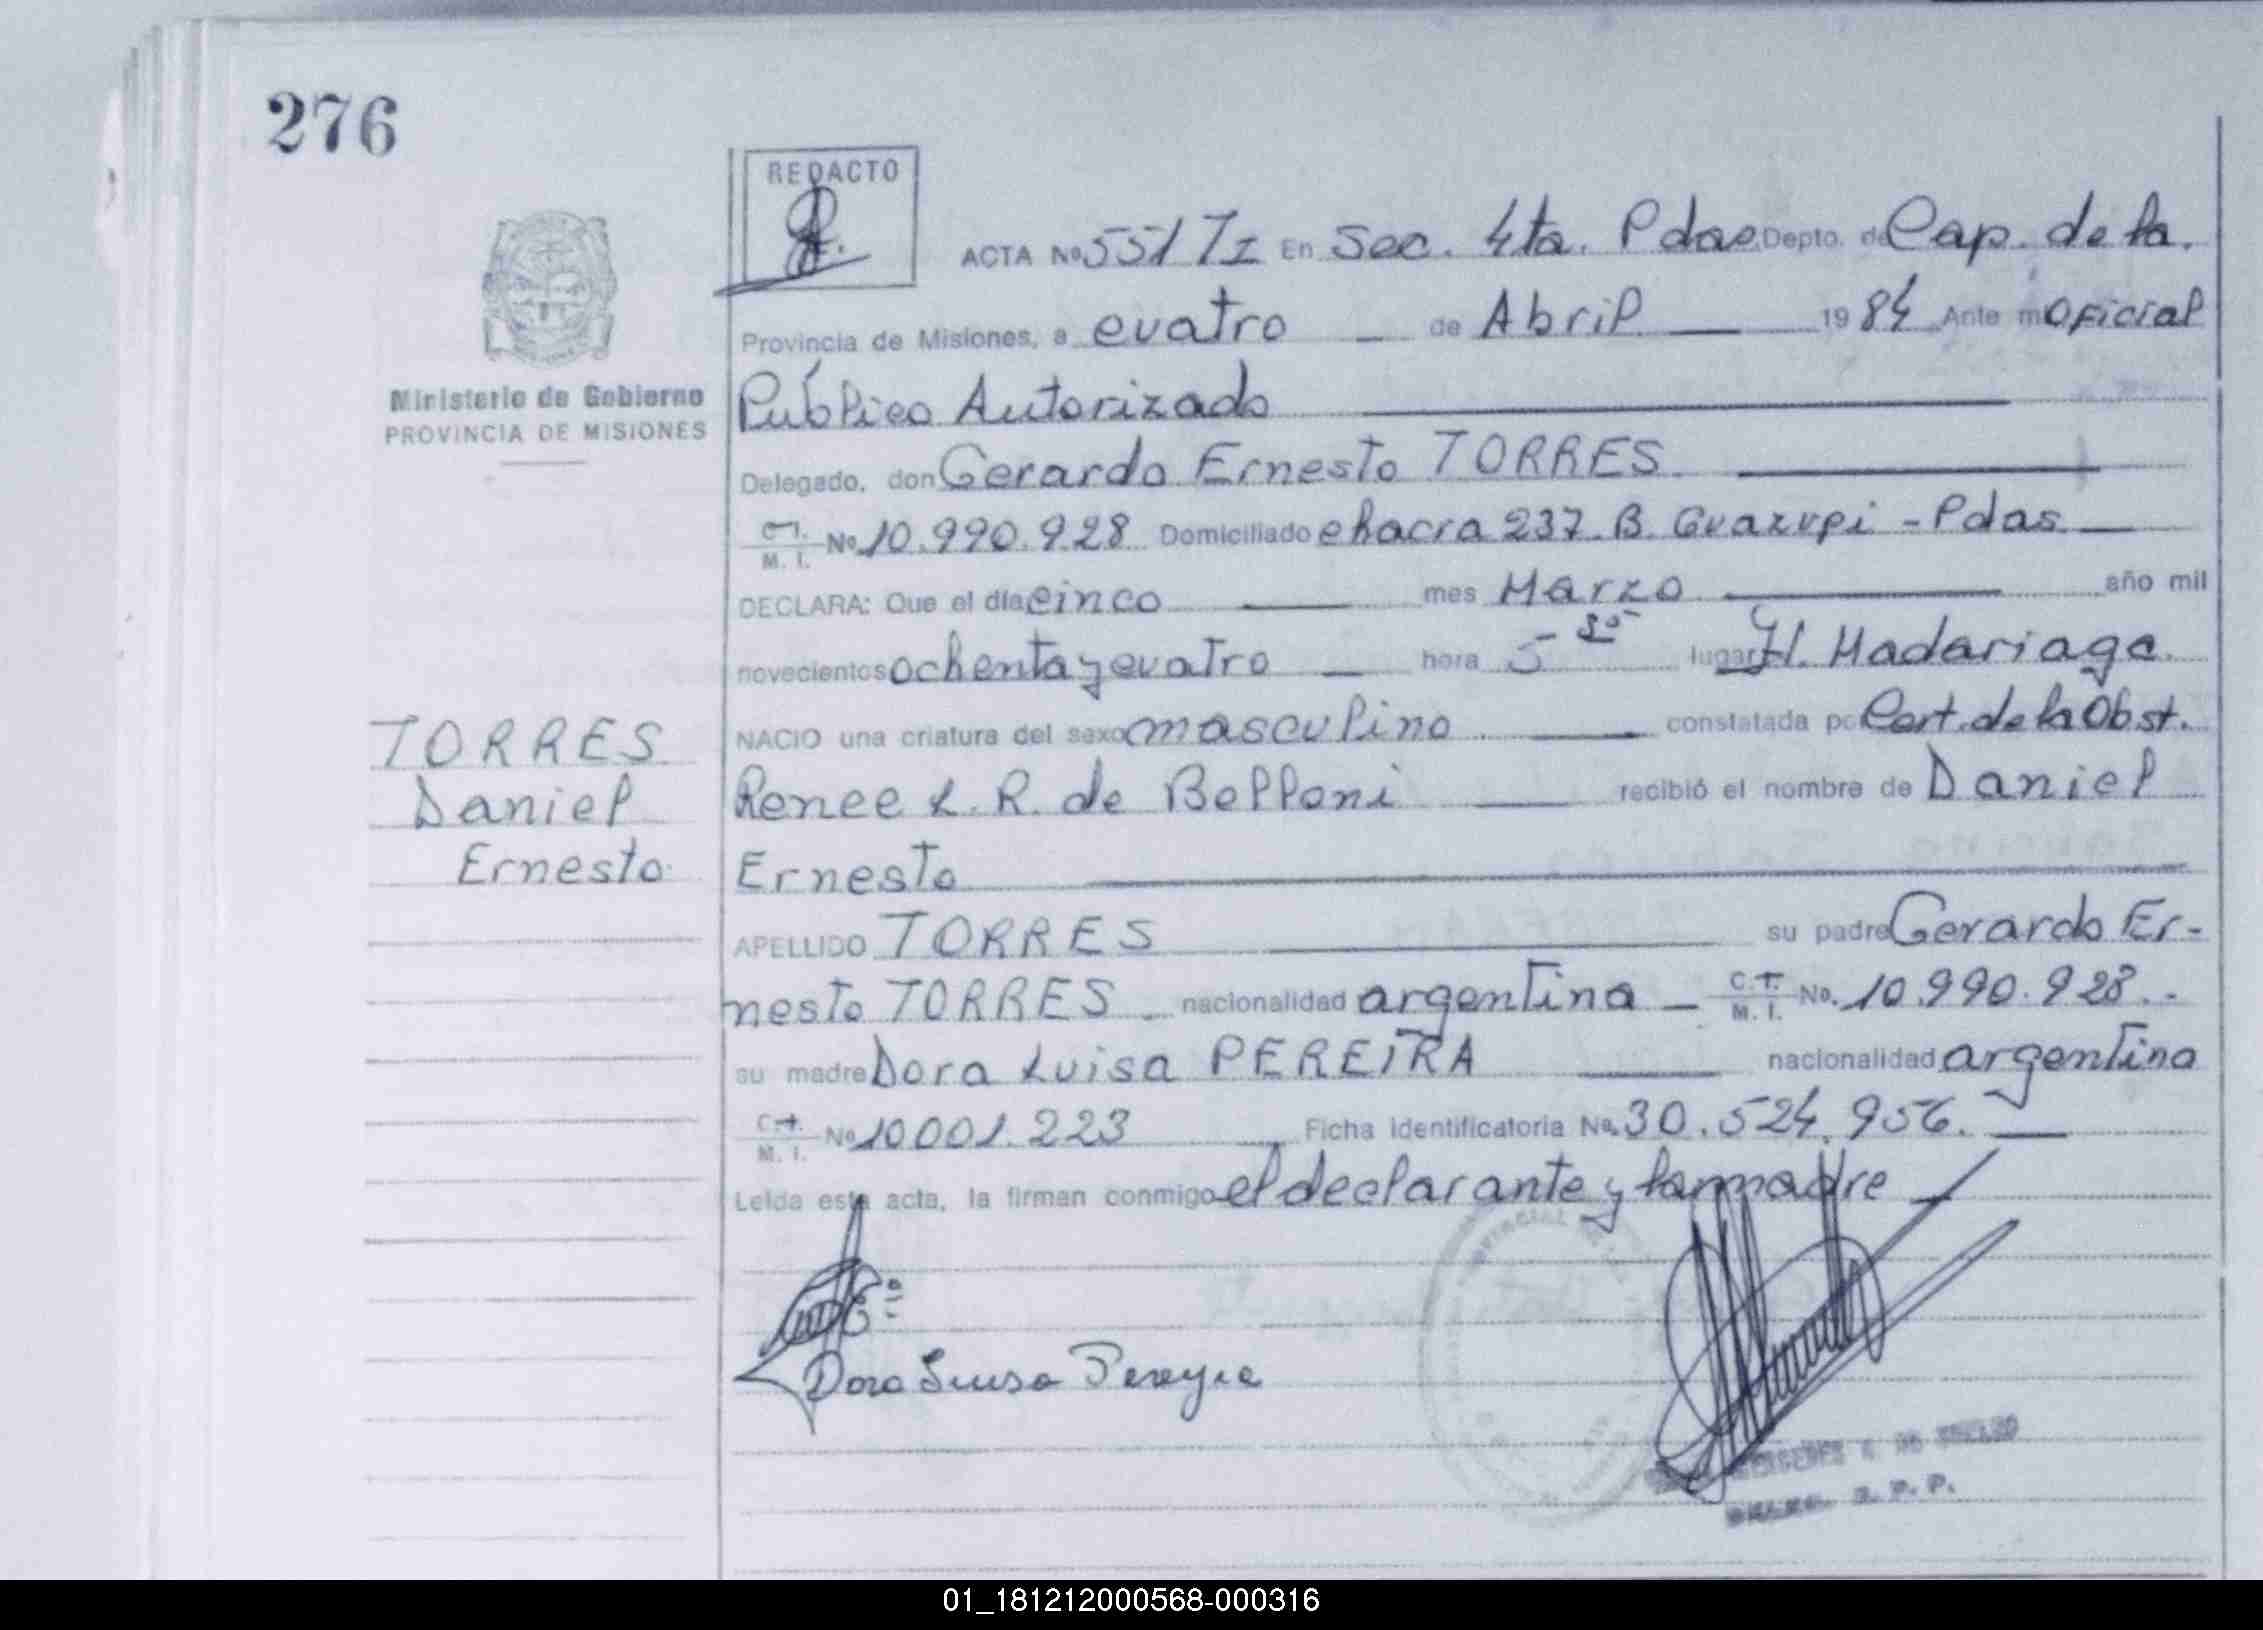 276
REDACTO
ACTA Nº 551 TI En Sec. 4ta. Pdas Depto. de Cap. de la.
Provincia de Misiones, a cuatro — de Abril — 1984 Ante mi Oficial
Ministerio de Gobierno
PROVINCIA DE MISIONES
Público Autorizado
Delegado, don Gerardo Ernesto TORRES
M. I. Nº 10.990.928 Domiciliado chacra 237. B. Guazupi - Pdas. —
DECLARA: Que el día cinco — mes Marzo — año mil
novecientos ochenta y cuatro — hora 5 30 lugar H. Madariaga.
NACIO una criatura del sexo masculino — constatada por Cert. de la Obst.
Renee L. R. de Belloni — recibió el nombre de Daniel
Ernesto
APELLIDO TORRES — su padre Gerardo Er-
nesto TORRES - nacionalidad argentina — C.I. M. I. No. 10.990.928.-
su madre Dora Luisa PEREIRA — nacionalidad argentina
C.I. M. I. Nº 10001.223 Ficha identificatoria No. 30.524.956. —
Leída esta acta, la firman conmigo el declarante y la madre —
TORRES
Daniel
Ernesto
Dora Luisa Pereyra
01_181212000568-000316